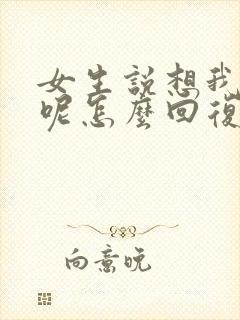 女生說想我
呢怎麼回復
向意晚